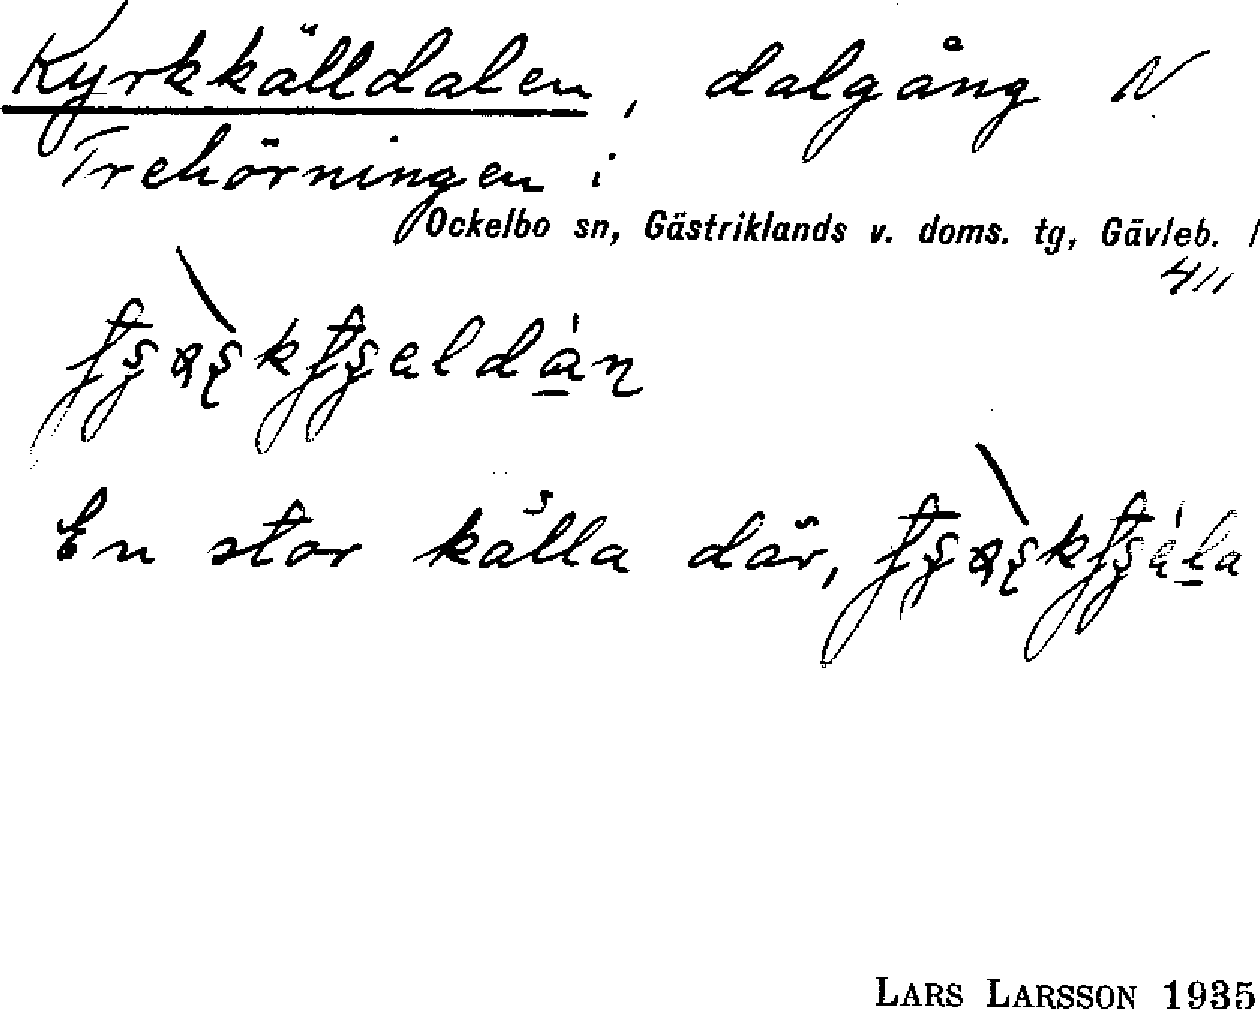 Kyrkkälldalen, dalgång N
Trehörningen i
Ockelbo sn, Gästriklands v. doms. tg, Gävleb. l
En stor källa där,
LARS LARSSON 1935